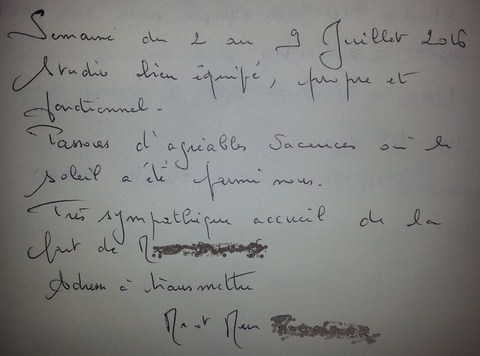 Semaine du 2 au 9 Juillet 2016
Studio bien équipé, propre et
fonctionnel.
Passons d'agréables vacances où le
soleil a été parmi nous.
Très sympathique accueil de la
part de M
Adresse à transmettre
Mr et Mme